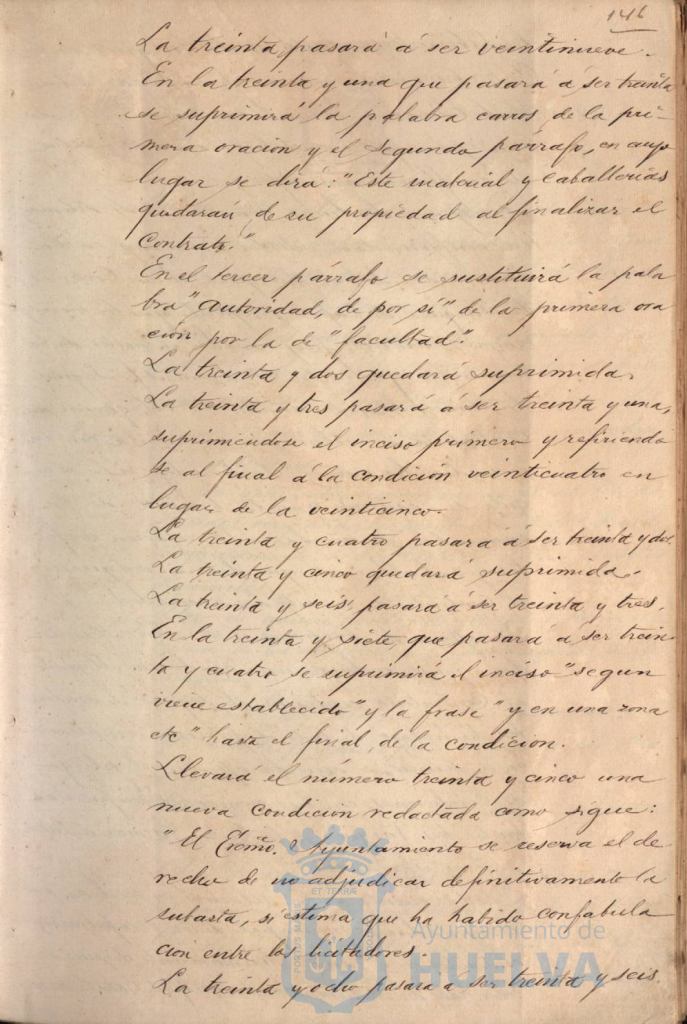 146
La treinta, pasará á ser veintinueve.
En la treinta y una que pasará á ser treinta
se suprimirá la palabra carros, de la pri-
mera oracion y el segundo párrafo, en cuyo
lugar se dirá: "Este material y caballerias
quedarán de su propiedad al finalizar el
contrato."
En el tercer párrafo se sustituirá la pala
bra "autoridad, de por sí", de la primera ora
ción por la de "facultad".
La treinta y dos quedará suprimida.
La treinta y tres pasará á ser treinta y una,
suprimiéndose el inciso primero y refiriendo
se al final á la condición veinticuatro en
lugar de la veinticinco.
La treinta y cuatro pasará á ser treinta y dos.
La treinta y cinco quedará suprimida.
La treinta y seis pasará á ser treinta y tres.
En la treinta y siete, que pasará á ser trein-
ta y cuatro se suprimirá el inciso "segun
viene establecido" y la frase "y en una zona
etc" hasta el final, de la condicion.
Llevará el número treinta y cinco una
nueva condición redactada como sigue:
"El Excmo. Ayuntamiento se reserva el de
recho de no adjudicar definitivamente la
subasta, si estima que ha habido confabula
cion entre los licitadores.
La treinta y ocho pasará á ser treinta y seis.
Ayuntamiento de
HUELVA